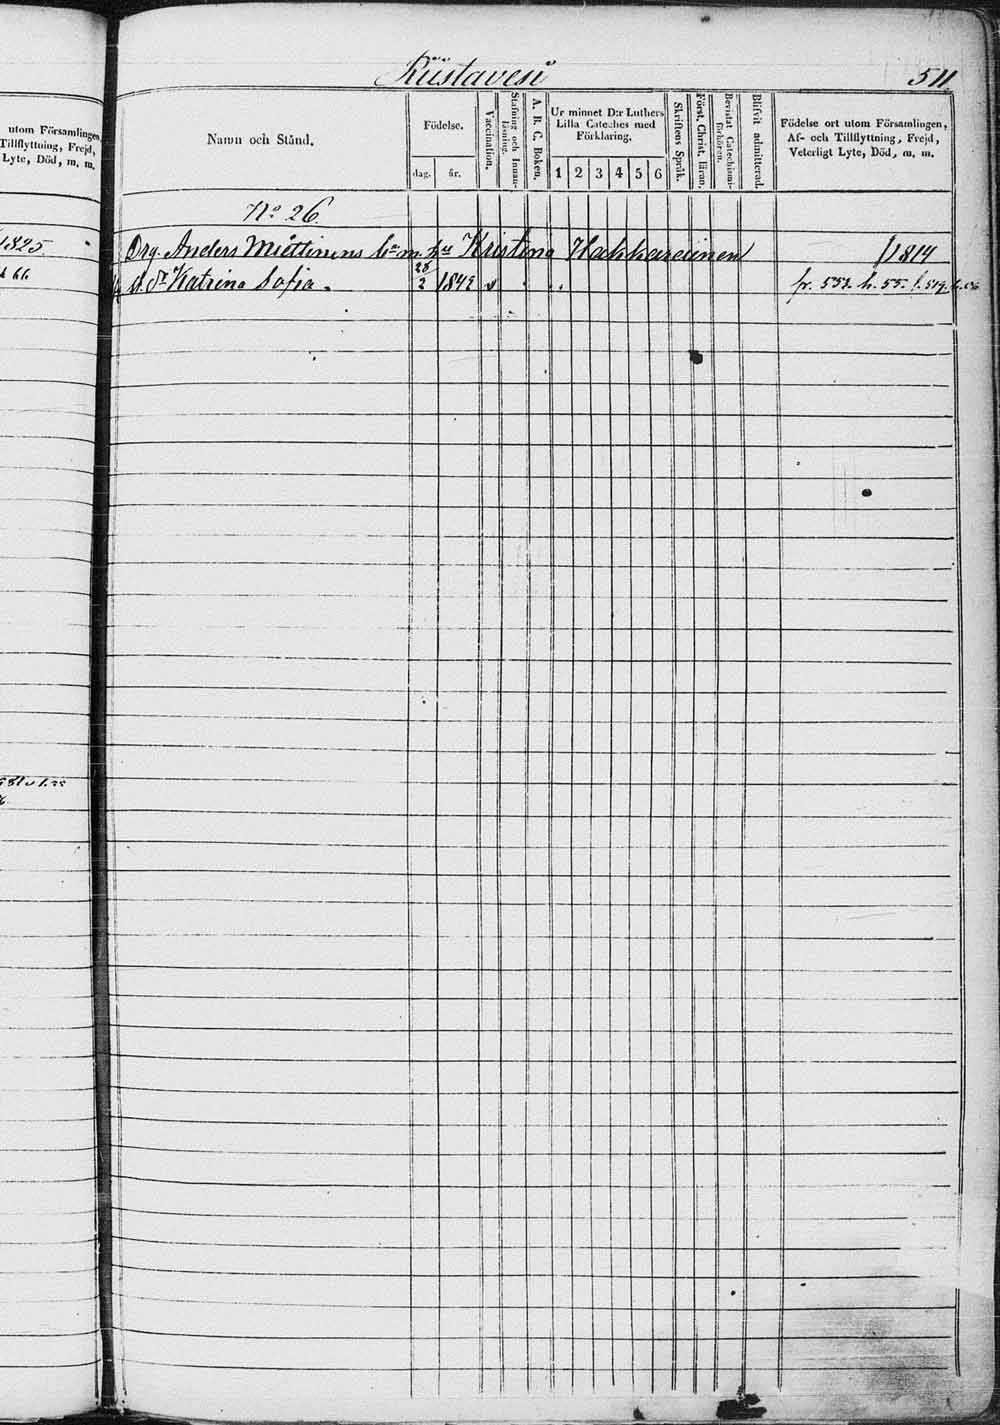 Riistavesi
511.
utom Församlingen,
Tillflyttning, Frejd,
Lyte, Död, m. m.
Namn och Stånd.
Födelse.
dag.
år.
Vaccination.
Stafning och Innanläsning.
A. B. C. Boken.
Ur minnet D:r Luthers
Lilla Cateches med
Förklaring.
1 2 3 4 5 6
Skriftens Språk.
Först. Christ. läran.
Bevistat Catechismiförhören.
Blifvit admitterad.
Födelse ort utom Församlingen,
Af- och Tillflyttning, Frejd,
Veterligt Lyte, Död, m. m.
No 26.
1825.
Drg. Anders Miettinens b:a m. hu Kristina Hakkarainen 1814
d. dr Katrina Sofia. 28/2 1842 fr. 553. h. 55.